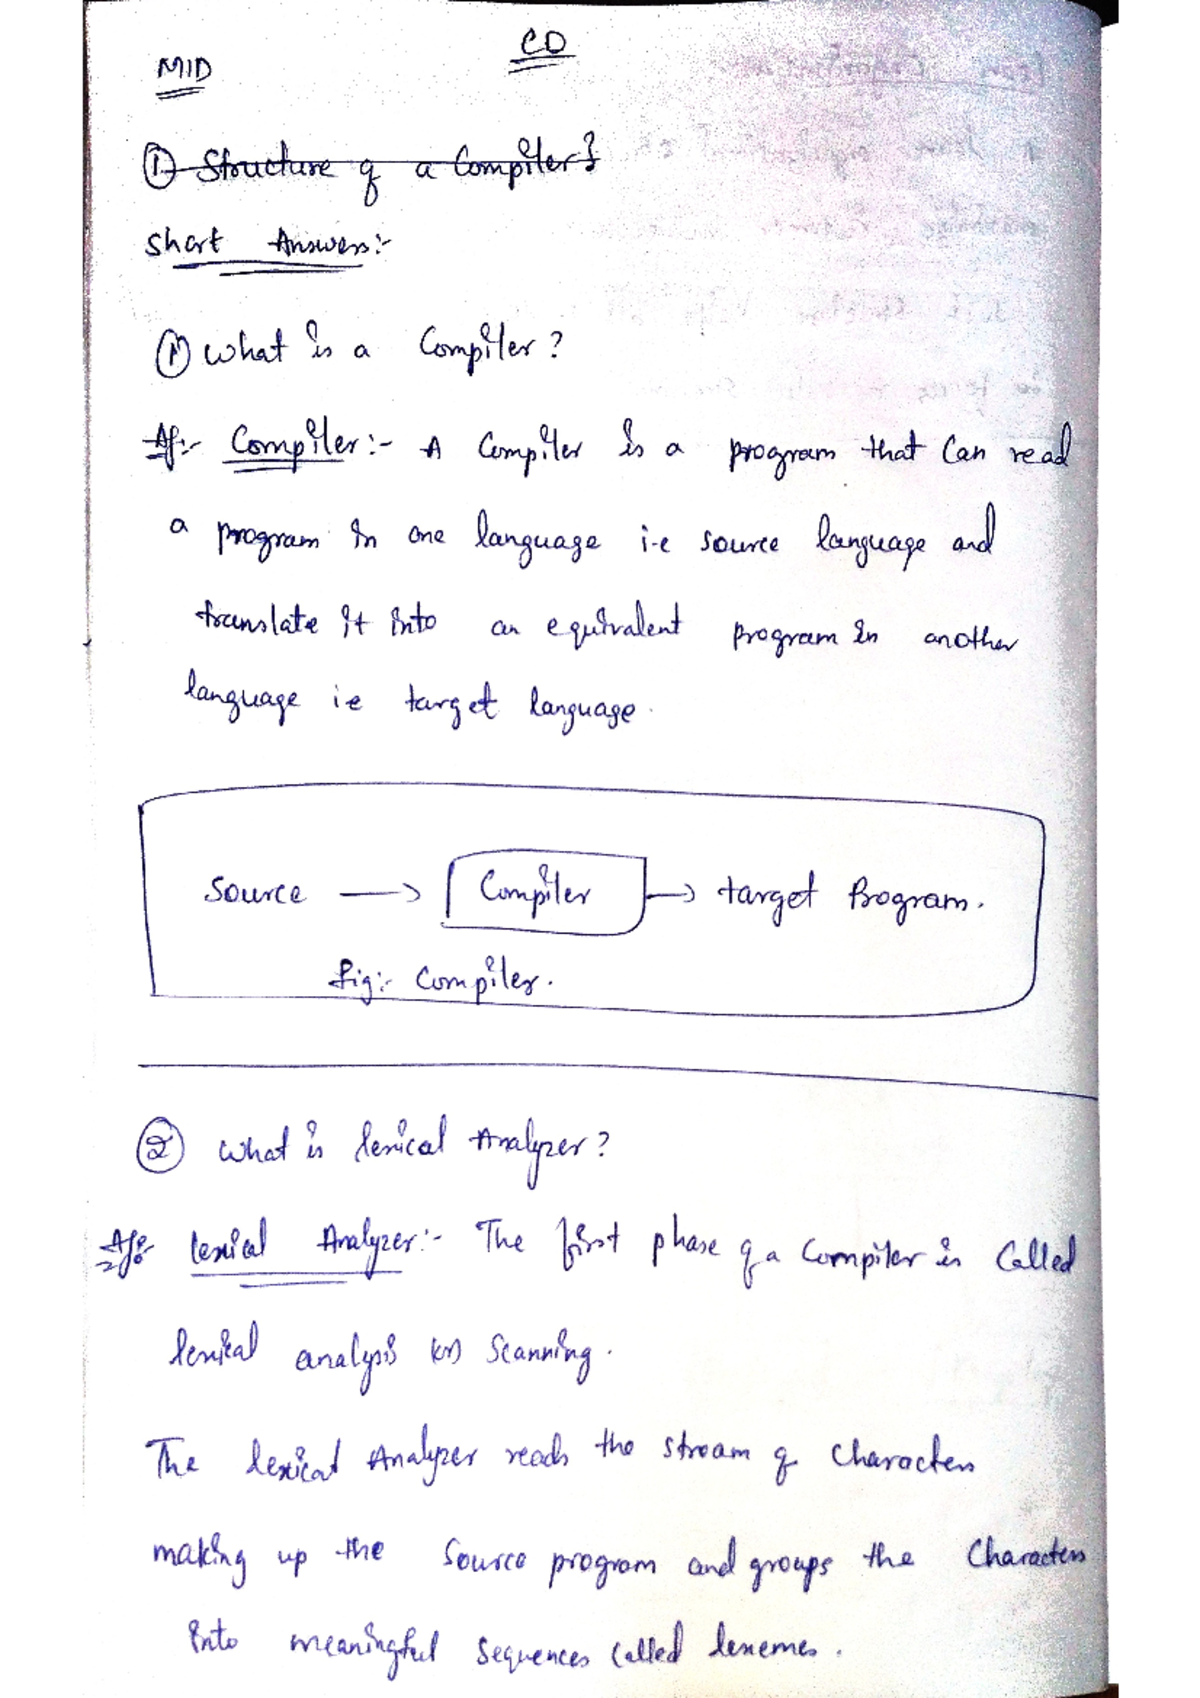 CD
MID
① Structure of a Compiler?
Short Answers:-
① What is a Compiler?
A/:- Compiler:- A Compiler is a program that Can read
a program in one language i-e source language and
translate it into an equivalent program in another
language ie target language.
Source → Compiler → target Program.
fig:- Compiler.
② What is lexical Analyzer?
Lexical Analyzer:- The first phase of a Compiler is Called
lexical analysis (or) Scanning.
The lexical Analyzer reads the stream of Characters
making up the Source program and groups the Characters
into meaningful Sequences Called lexemes.